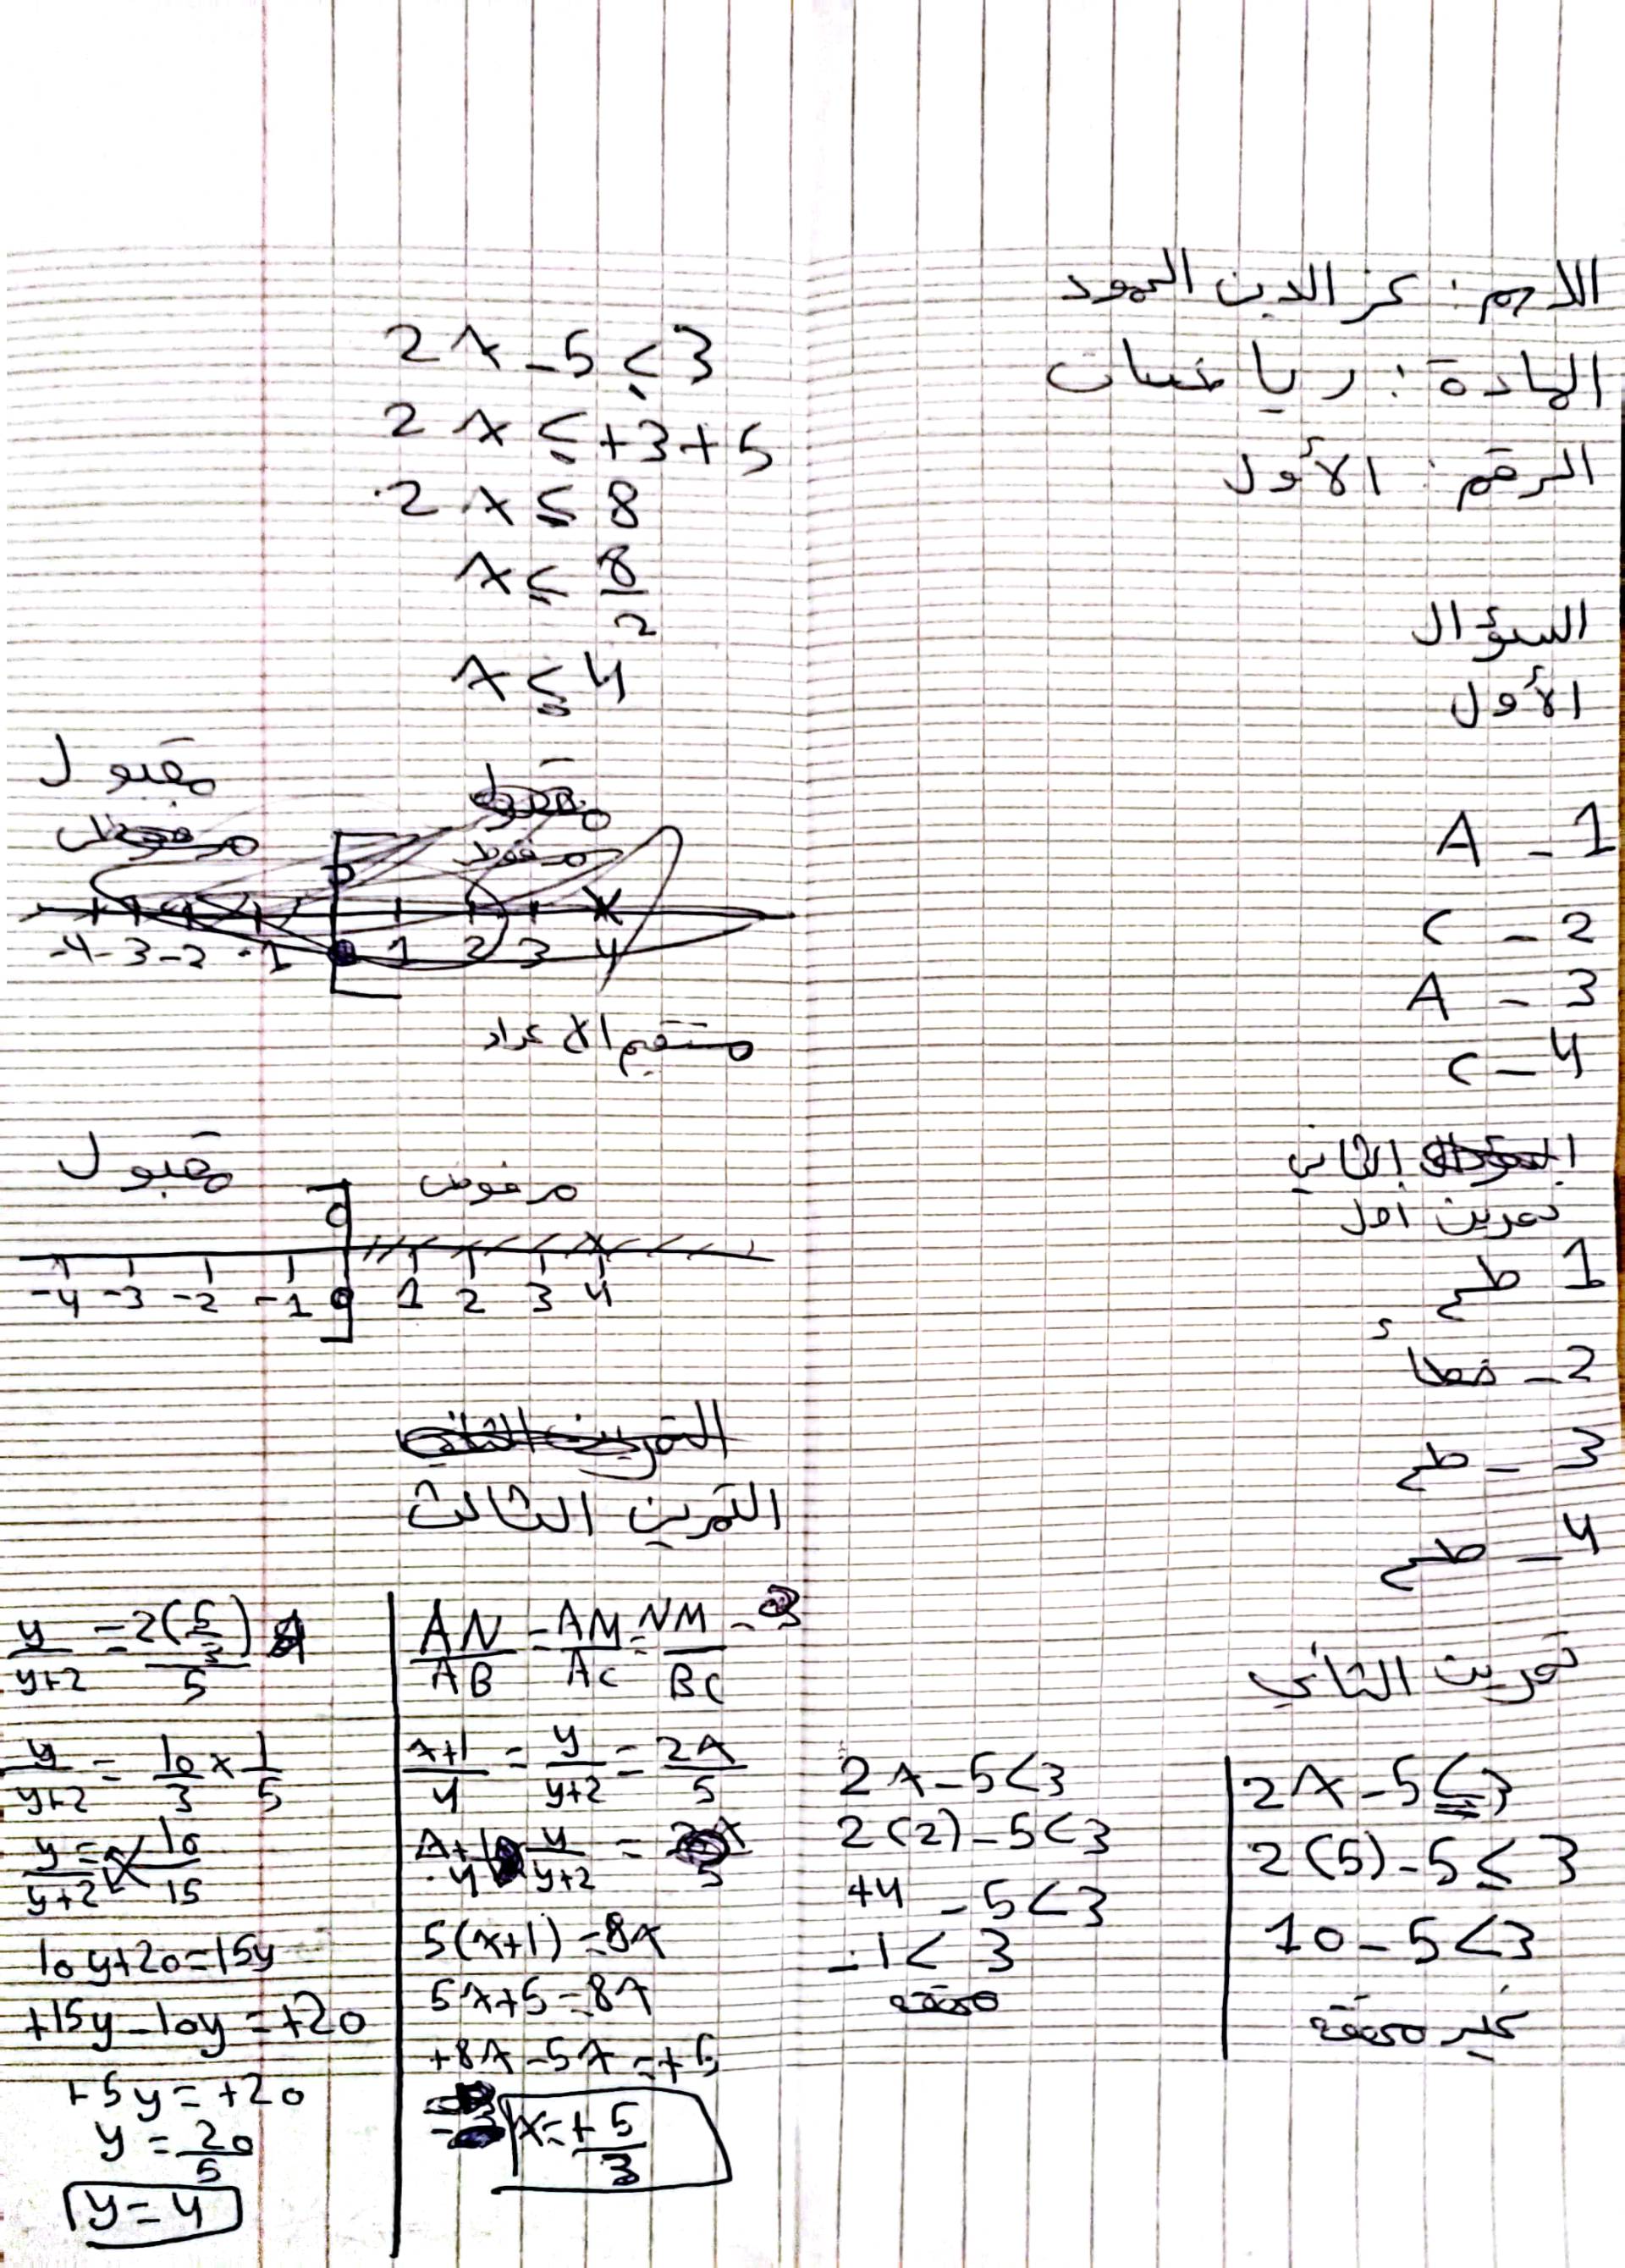 الاسم : عز الدين الحمود
المادة : رياضيات
الرقم : الأول
السؤال
الأول
1 - A
2 - C
3 - A
4 - C
الثاني
تمرين أول
1 صح
2 - خطأ
3 - صح
4 - صح
تمرين الثاني
2x - 5 ≤ 3
2(5) - 5 ≤ 3
10 - 5 < 3
غير محققة
2x - 5 < 3
2(2) - 5 < 3
+4 - 5 < 3
-1 < 3
محققة
2x - 5 ≤ 3
2x ≤ +3 + 5
2x ≤ 8
x ≤ 8/2
x ≤ 4
مقبول
مرفوض
-4 -3 -2 -1 0 1 2 3 4
مستقيم الاعداد
مقبول مرفوض
-4 -3 -2 -1 0 1 2 3 4
التمرين الثالث
AN/AB = AM/AC = NM/BC
x+1/4 = y/y+2 = 2x/5
x+1/4 y/y+2 = 2x/5
5(x+1) = 8x
5x+5 = 8x
+8x - 5x = +5
x = +5/3
y/y+2 = 2(5/3)/5
y/y+2 = 10/3 × 1/5
y/y+2 = 10/15
10y+20 = 15y
+15y - 10y = +20
+5y = +20
y = 20/5
y = 4